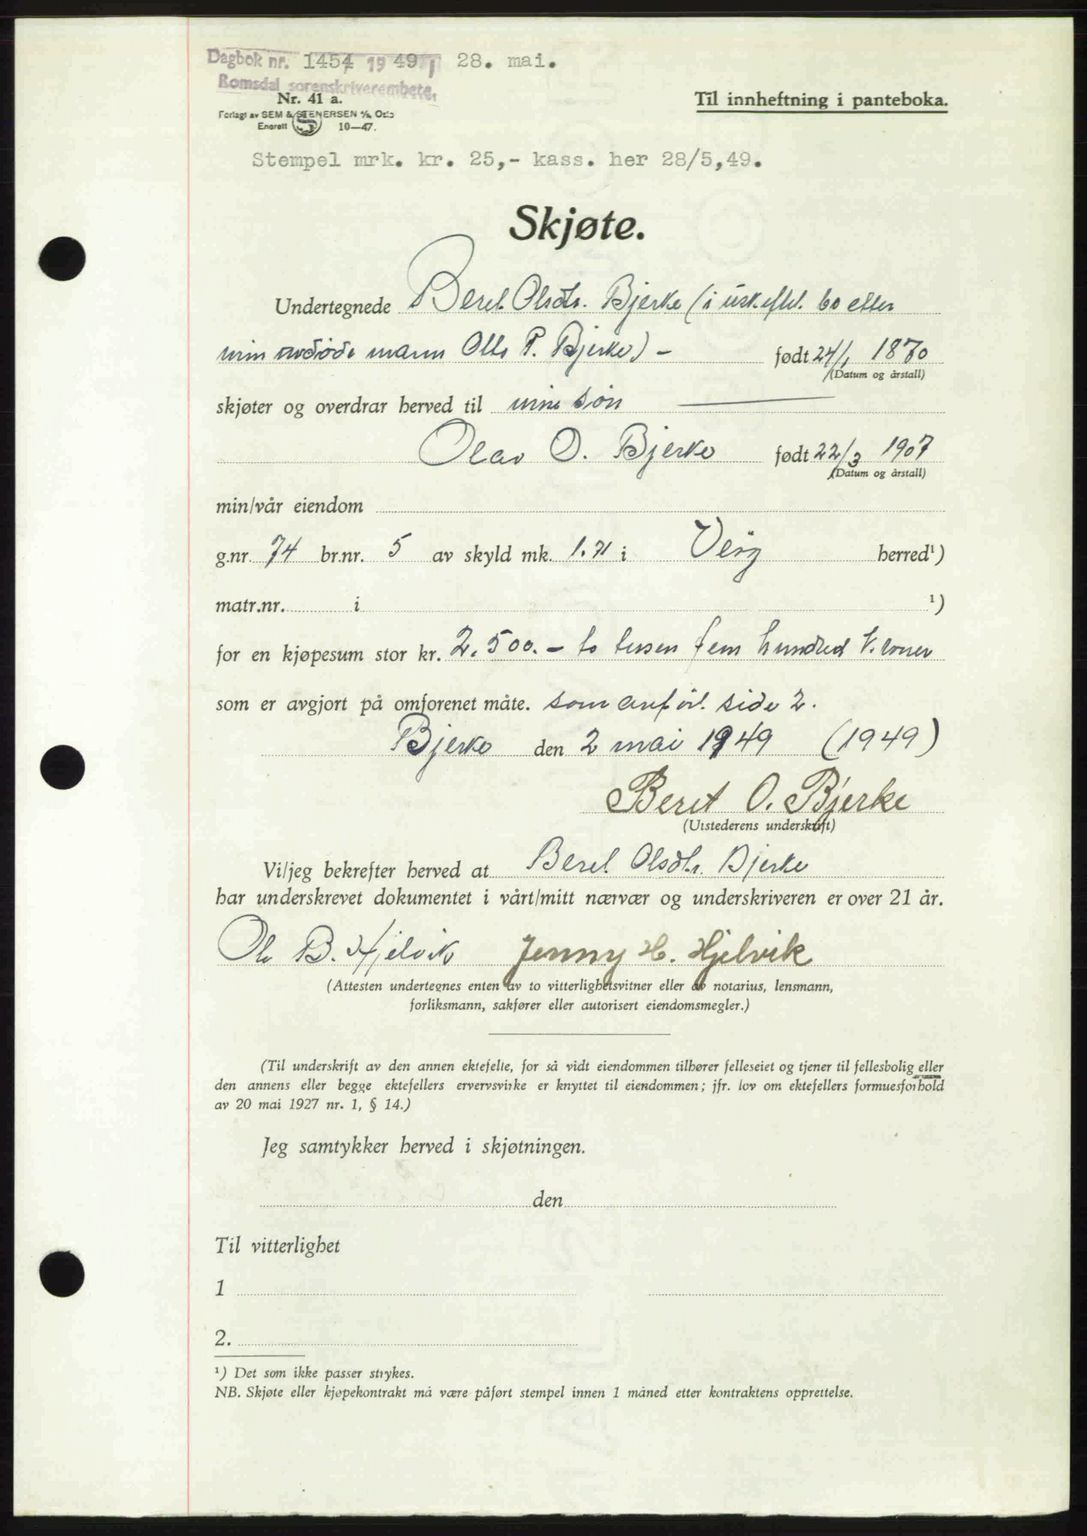 Dagbok nr. 1454 1949 28. mai.
Romsdal sorenskriverembete.
Nr. 41 a.
Til innheftning i panteboka.
Forlagt av SEM & STENERSEN A/S, Oslo
Enerett 10—47.
Stempel mrk. kr. 25,- kass. her 28/5,49.
Skjøte.
Undertegnede Beret Olsdtr. Bjerke (i uskiftet bo etter
min mann Olls P. Bjerke) - født 24/1 1870
(Datum og årstall)
skjøter og overdrar herved til min søn
Olav O. Bjerke født 22/3 1907
(Datum og årstall)
min/vår eiendom
g.nr. 74 br.nr. 5 av skyld mk. 1.71 i Veøy herred¹)
matr.nr. i ¹)
for en kjøpesum stor kr. 2.500.- to tusen fem hundred kroner
som er avgjort på omforenet måte. som anført side 2.
Bjerke den 2 mai 1949 (1949)
Beret O. Bjerke
(Utstederens underskrift)
Vi/jeg bekrefter herved at Beret Olsdtr. Bjerke
har underskrevet dokumentet i vårt/mitt nærvær og underskriveren er over 21 år.
Ole B. Hjelvik Jenny H. Hjelvik
(Attesten undertegnes enten av to vitterlighetsvitner eller av notarius, lensmann,
forliksmann, sakfører eller autorisert eiendomsmegler.)
(Til underskrift av den annen ektefelle, for så vidt eiendommen tilhører felleseiet og tjener til fellesbolig eller
den annens eller begge ektefellers ervervsvirke er knyttet til eiendommen; jfr. lov om ektefellers formuesforhold
av 20 mai 1927 nr. 1, § 14.)
Jeg samtykker herved i skjøtningen.
den
Til vitterlighet
1
2.
¹) Det som ikke passer strykes.
NB. Skjøte eller kjøpekontrakt må være påført stempel innen 1 måned etter kontraktens opprettelse.